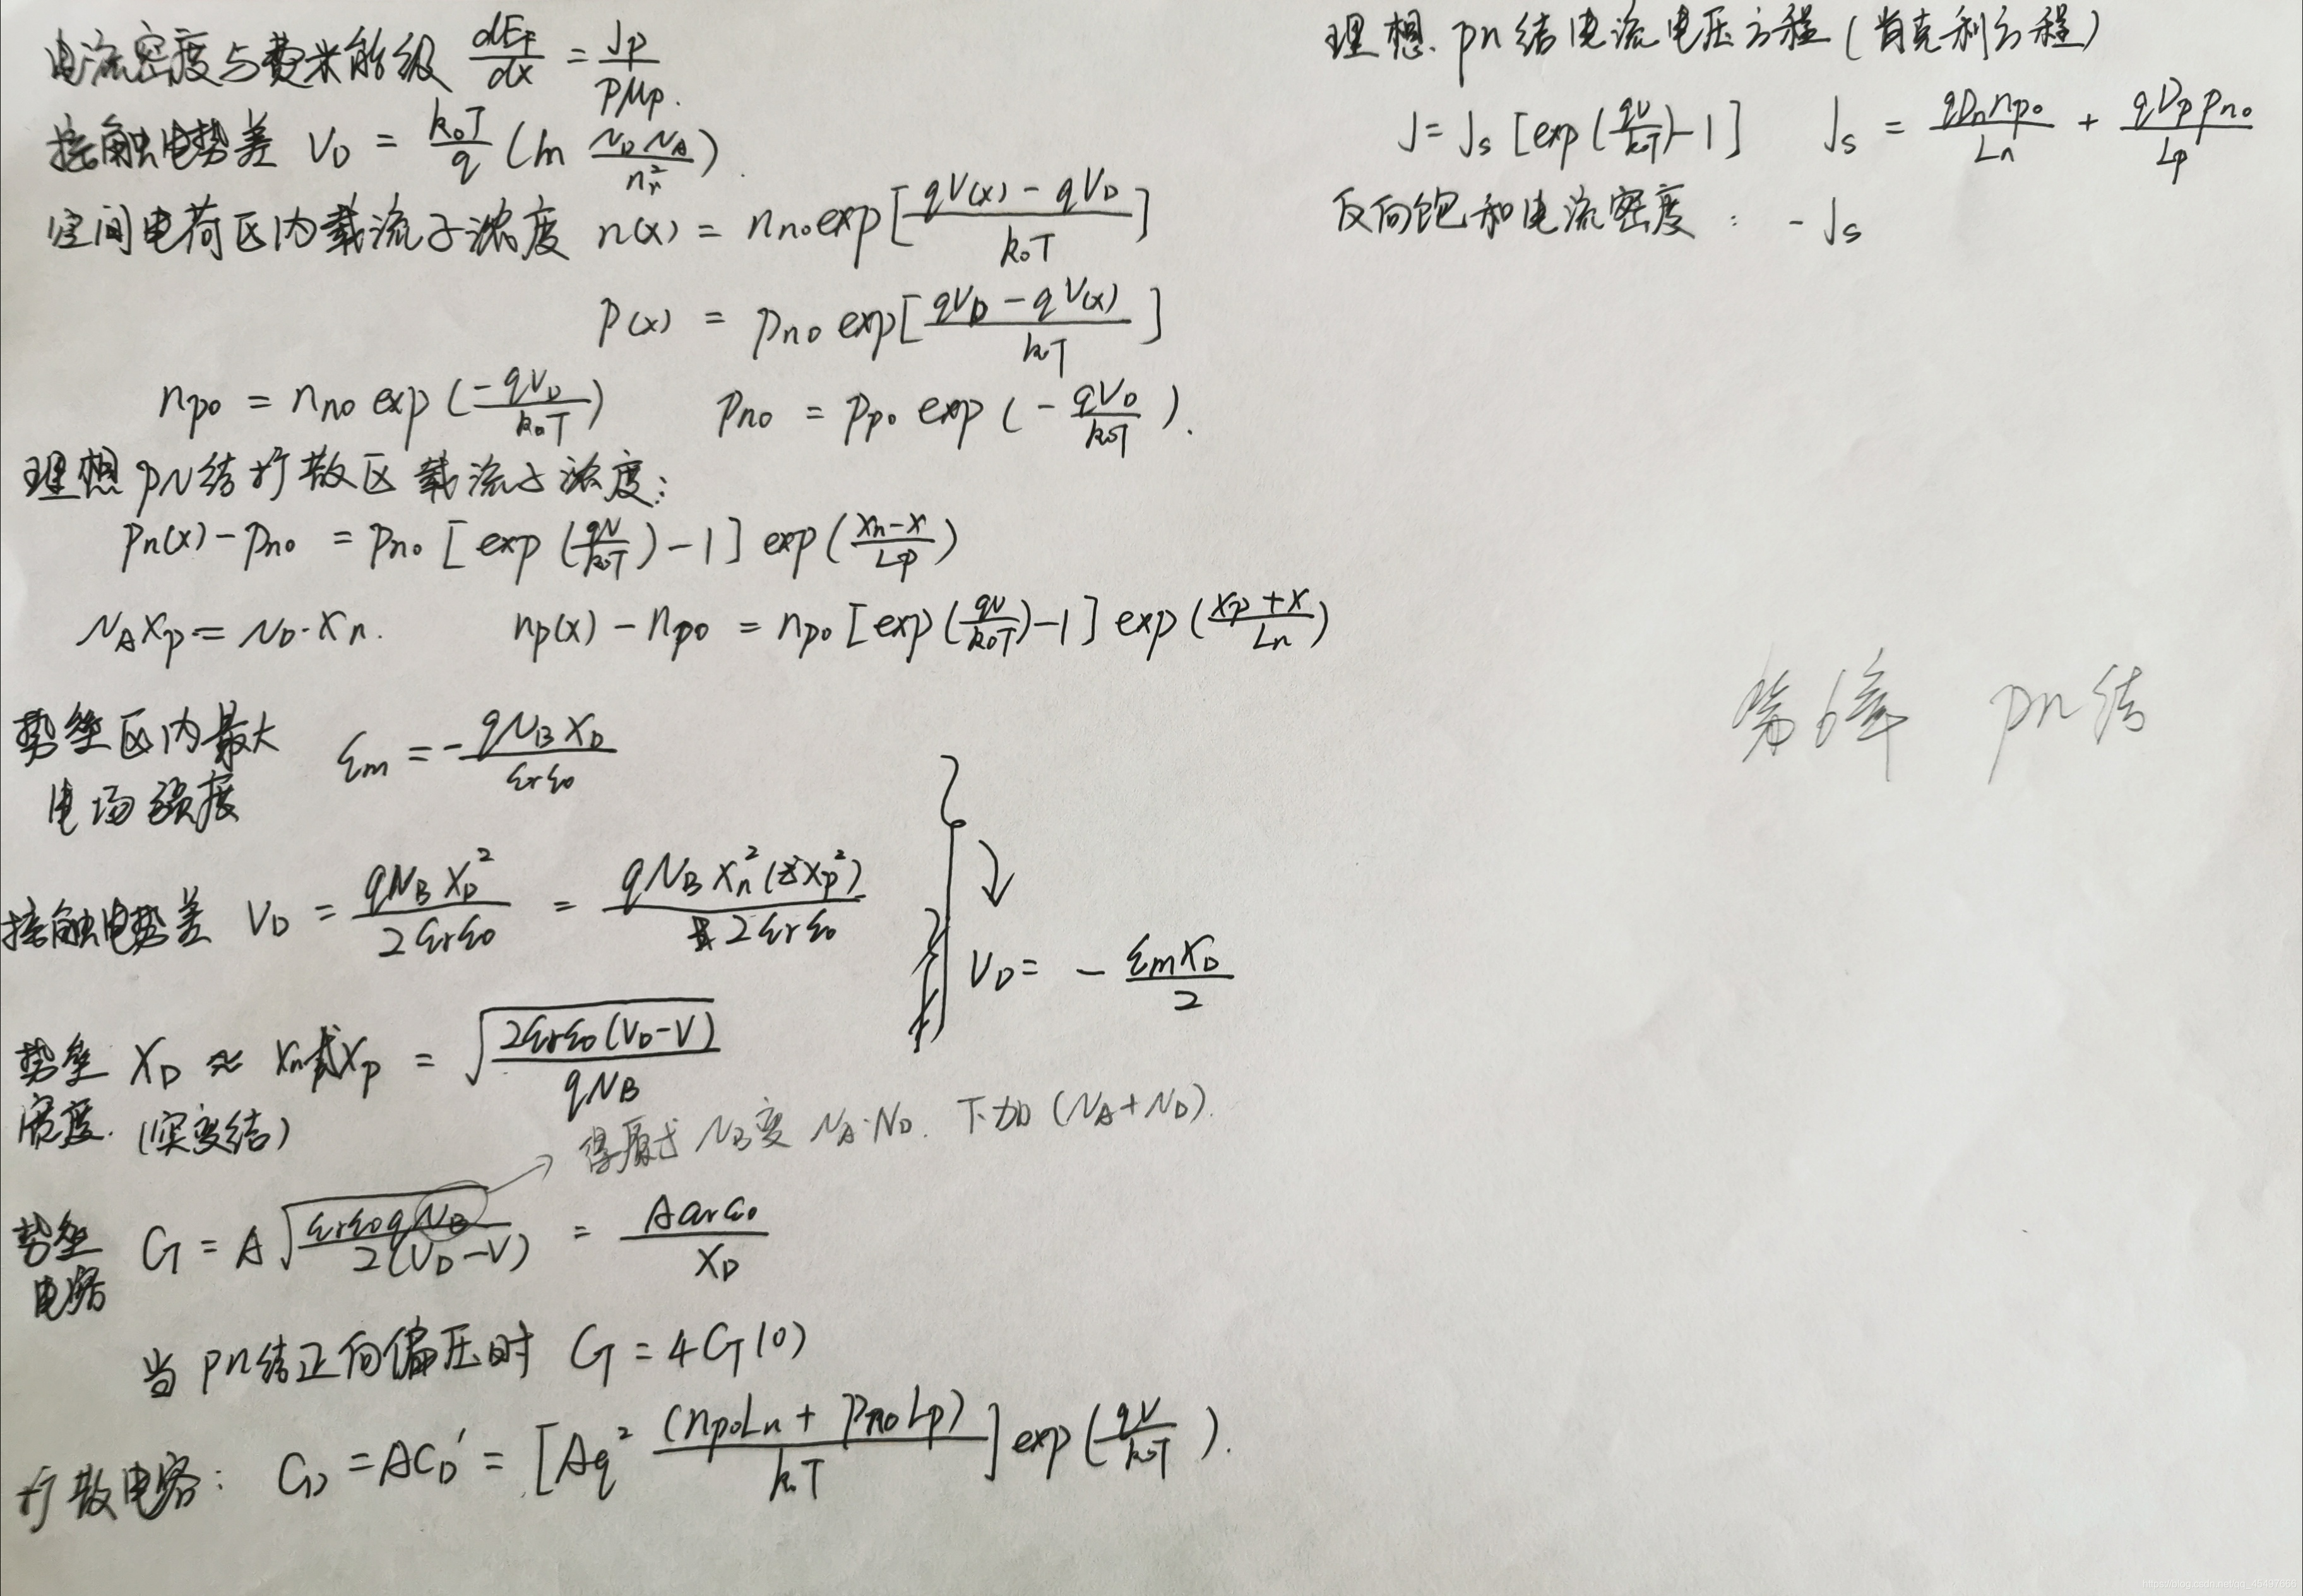 电流密度与费米能级 dE_F/dx = J_p/(pμ_p).
接触电势差 V_D = k₀T/q (ln N_D N_A/n_i²).
空间电荷区内载流子浓度 n(x) = n_n0 exp[(qV(x) - qV_D)/k₀T]
p(x) = p_n0 exp[(qV_D - qV(x))/k₀T]
n_p0 = n_n0 exp(-qV_D/k₀T) p_n0 = p_p0 exp(-qV_D/k₀T).
理想PN结扩散区载流子浓度:
p_n(x) - p_n0 = p_n0 [exp(qV/k₀T) - 1] exp((x_n - x)/L_p)
N_A X_p = N_D·X_n. n_p(x) - n_p0 = n_p0 [exp(qV/k₀T) - 1] exp((x_p + x)/L_n)
势垒区内最大
电场强度 ℰ_m = -qN_B X_D/(ε_r ε_0)
接触电势差 V_D = qN_B X_D²/(2ε_r ε_0) = qN_B X_n²(或X_p²)/(2ε_r ε_0)
V_D = -ℰ_m X_D/2
势垒宽度. X_D ≈ X_n或X_p = √(2ε_r ε_0(V_D - V)/(qN_B))
(突变结)
N_B变 N_A·N_D. 下加 (N_A + N_D).
势垒电容 C_T = A√(ε_r ε_0 q N_B/(2(V_D - V))) = Aε_r ε_0/X_D
当pn结正向偏压时 C_T = 4C_T(0)
扩散电容: C_D = AC_D' = [Aq² (n_p0 L_n + p_n0 L_p)/k₀T] exp(qV/k₀T).
理想pn结电流电压方程(肖克利方程)
J = J_s [exp(qV/k₀T) - 1] J_s = qD_n n_p0/L_n + qD_p p_n0/L_p
反向饱和电流密度: -J_s
第6章 pn结